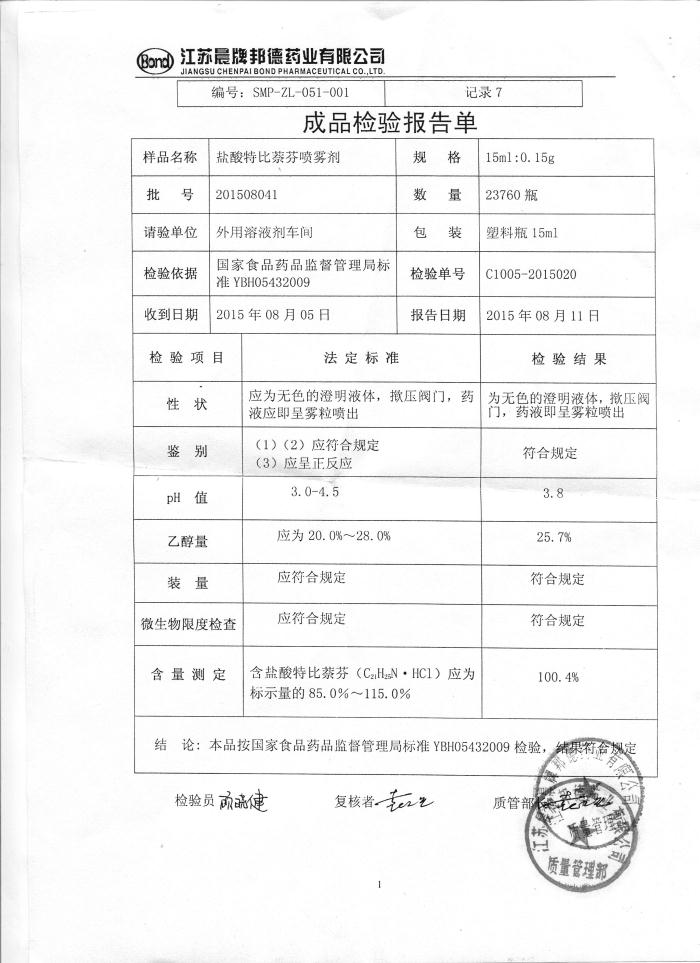 Bond 江苏晨牌邦德药业有限公司
JIANGSU CHENPAI BOND PHARMACEUTICAL CO.,LTD.
编号：SMP-ZL-051-001 记录 7
成品检验报告单
样品名称 盐酸特比萘芬喷雾剂 规 格 15ml:0.15g
批 号 201508041 数 量 23760 瓶
请验单位 外用溶液剂车间 包 装 塑料瓶 15ml
检验依据 国家食品药品监督管理局标
准 YBH05432009 检验单号 C1005-2015020
收到日期 2015 年 08 月 05 日 报告日期 2015 年 08 月 11 日
检 验 项 目 法 定 标 准 检 验 结 果
性 状 应为无色的澄明液体，揿压阀门，药
液应即呈雾粒喷出 为无色的澄明液体，揿压阀
门，药液即呈雾粒喷出
鉴 别 （1）（2）应符合规定
（3）应呈正反应 符合规定
pH 值 3.0-4.5 3.8
乙醇量 应为 20.0%～28.0% 25.7%
装 量 应符合规定 符合规定
微生物限度检查 应符合规定 符合规定
含 量 测 定 含盐酸特比萘芬（C₂₁H₂₅N·HCl）应为
标示量的 85.0%～115.0% 100.4%
结 论：本品按国家食品药品监督管理局标准 YBH05432009 检验，结果符合规定
检验员 复核者 质管部
质量管理部
1